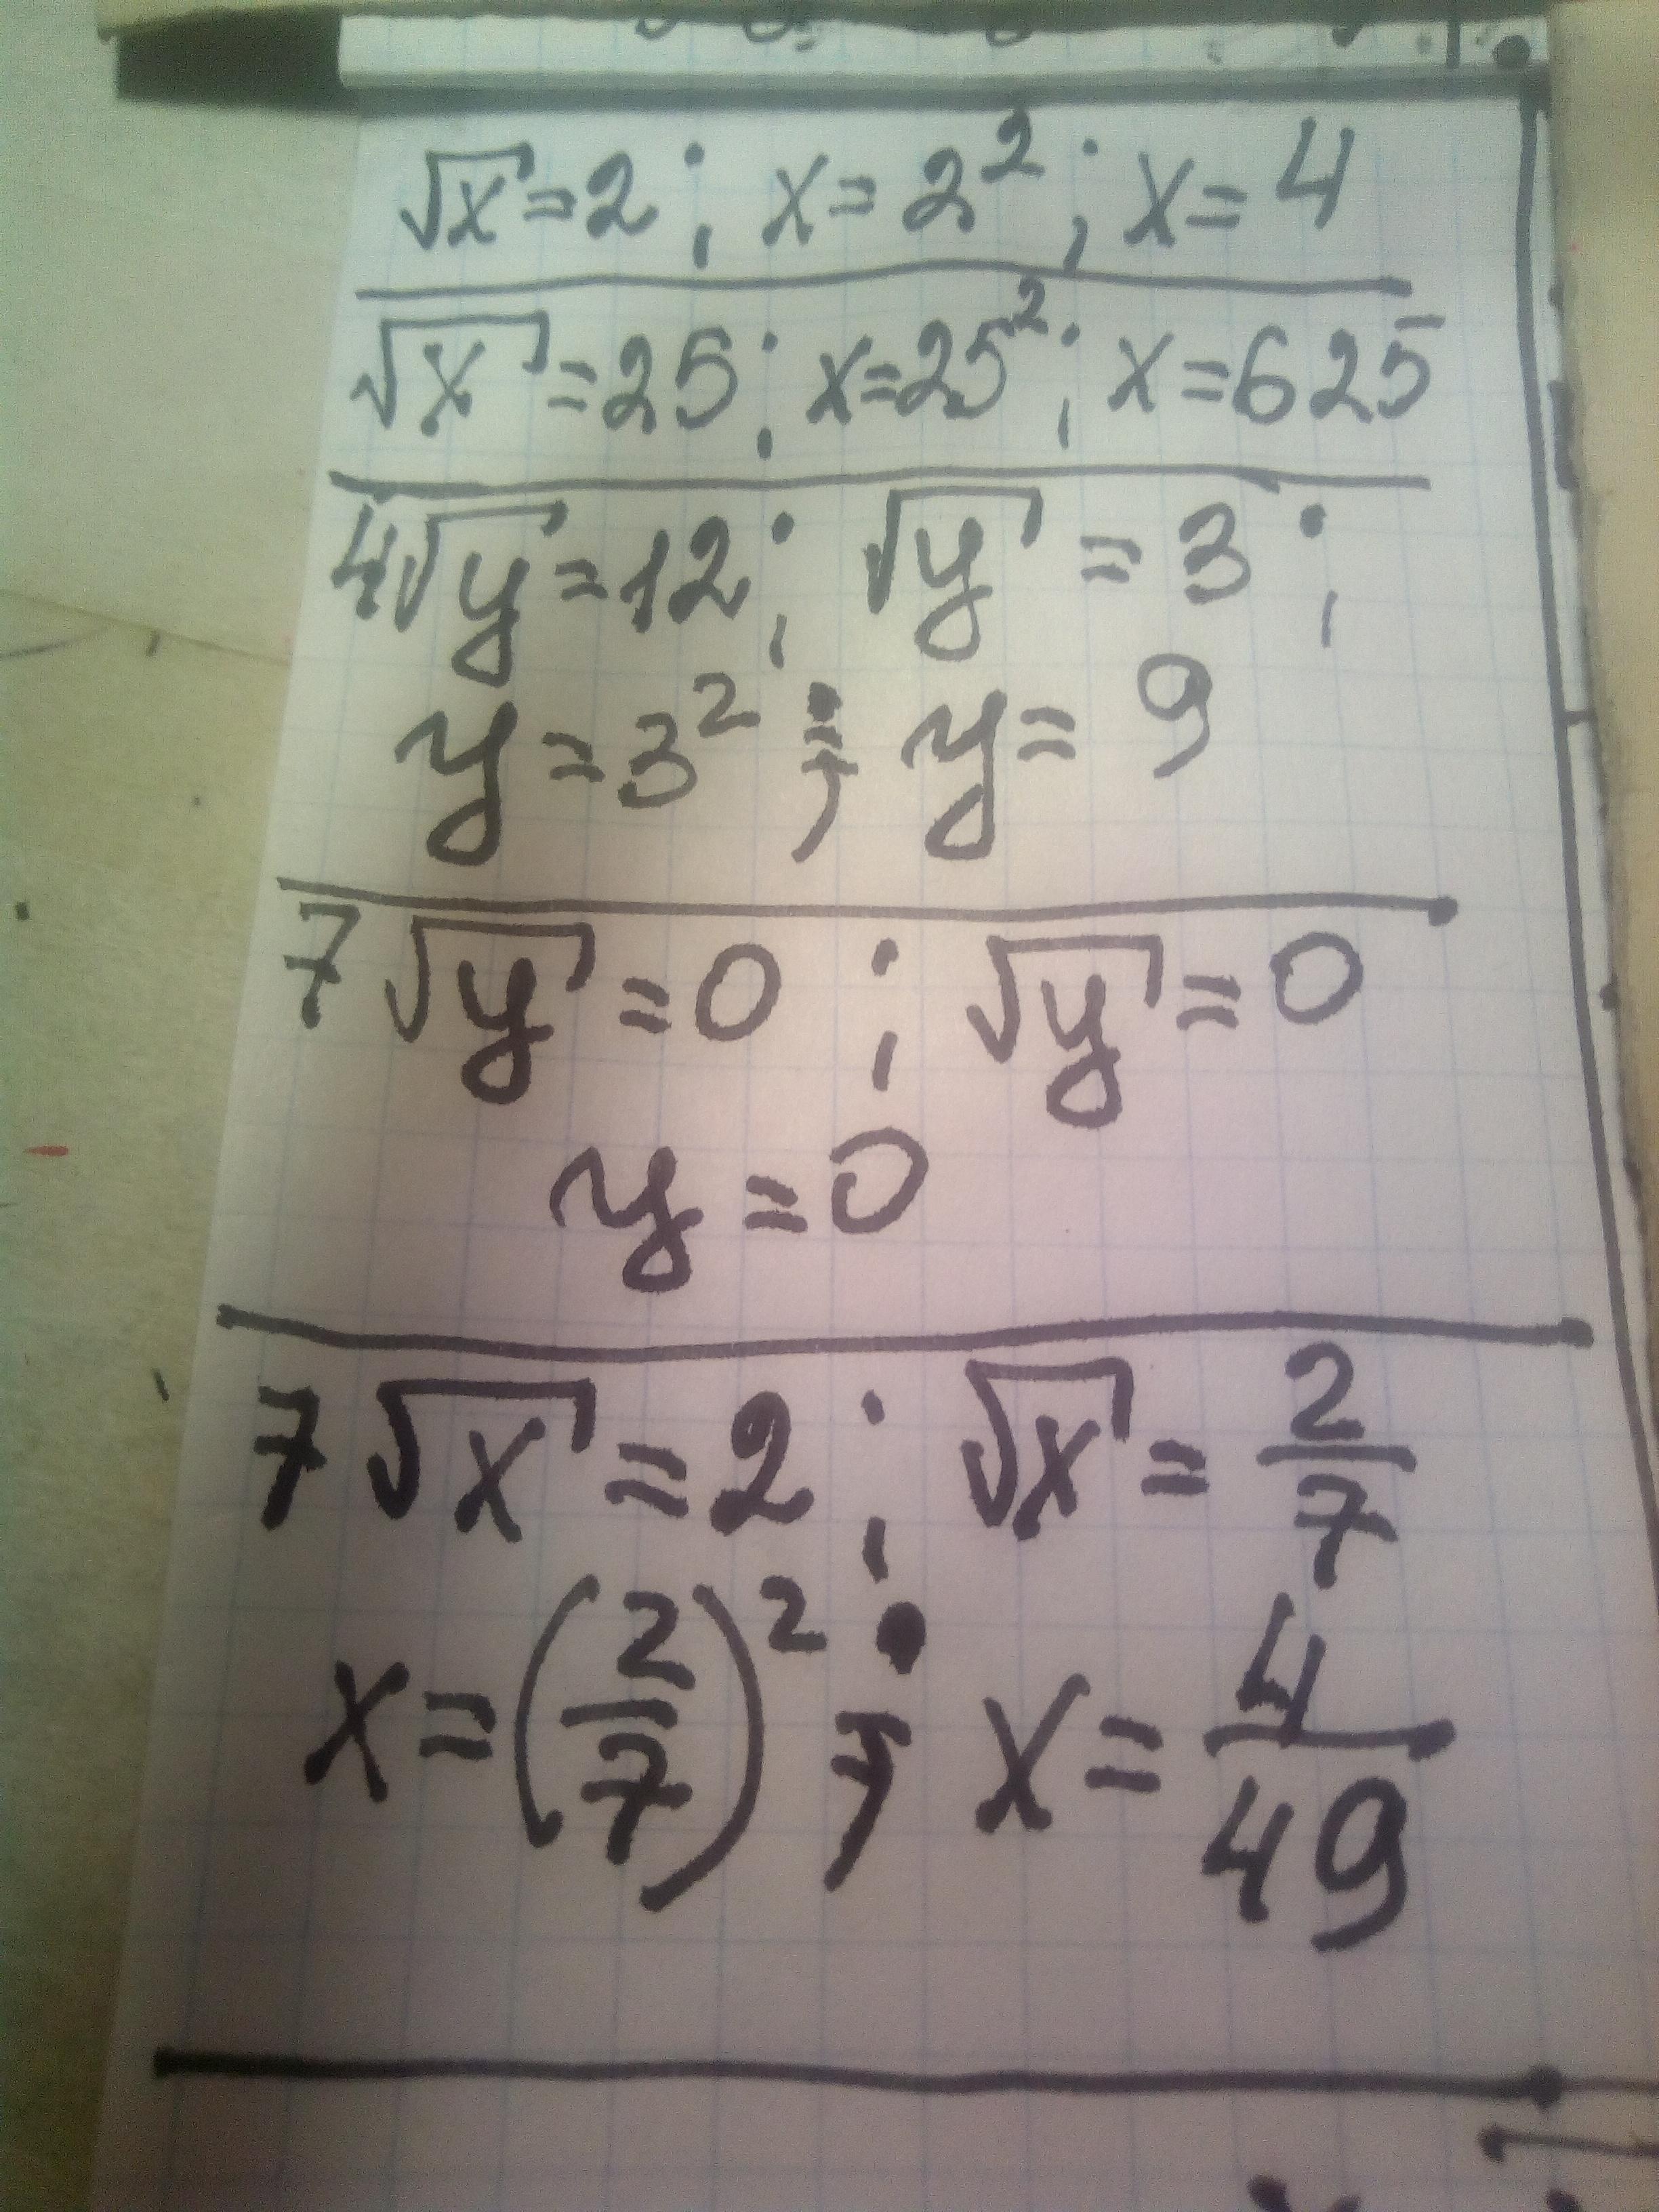 √x = 2 ; x = 2² ; x = 4
√x = 25 ; x = 25² ; x = 625
4√y = 12 ; √y = 3 ;
y = 3² ; y = 9
7√y = 0 ; √y = 0
y = 0
7√x = 2 ; √x = 2/7
x = (2/7)² ; x = 4/49